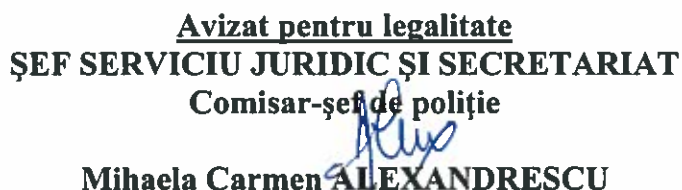 Avizat pentru legalitate
ȘEF SERVICIU JURIDIC ȘI SECRETARIAT
Comisar-șef de poliție
Mihaela Carmen ALEXANDRESCU